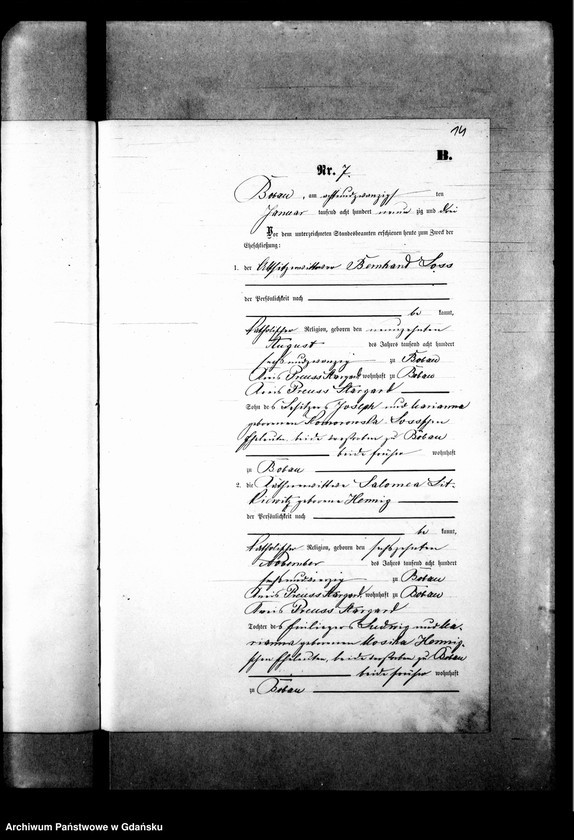 14
B.
Nr. 7.
Bobau, am achtundzwanzigsten den
Januar tausend acht hundert neunzig und drei
Vor dem unterzeichneten Standesbeamten erschienen heute zum Zweck der
Eheschließung:
1. der Altsitzerwittwer Bernhard Loss
der Persönlichkeit nach
be kannt,
katholischer Religion, geboren den neunzehnten
August des Jahres tausend acht hundert
sechsundzwanzig zu Bobau
Kreis Preuss Stargard, wohnhaft zu Bobau
Kreis Preuss Stargard
Sohn des Besitzers Joseph und Marianna
geborenen Pomorowska Loss'schen
Eheleute, beide verstorben zu Bobau
beide früher wohnhaft
zu Bobau
2. die Käthnerwittwe Salomea Lit-
kiewitz geborene Hennig
der Persönlichkeit nach
be kannt,
katholischer Religion, geboren den sechszehnten
November des Jahres tausend acht hundert
zu Bobau
Kreis Preuss Stargard, wohnhaft zu Bobau
Kreis Preuss Stargard
Tochter des Einliegers Ludwig und Ma-
rianna geborenen Mosika Hennig-
schen Eheleuten, beide verstorben zu Bobau
beide früher wohnhaft
zu Bobau
Archiwum Państwowe w Gdańsku